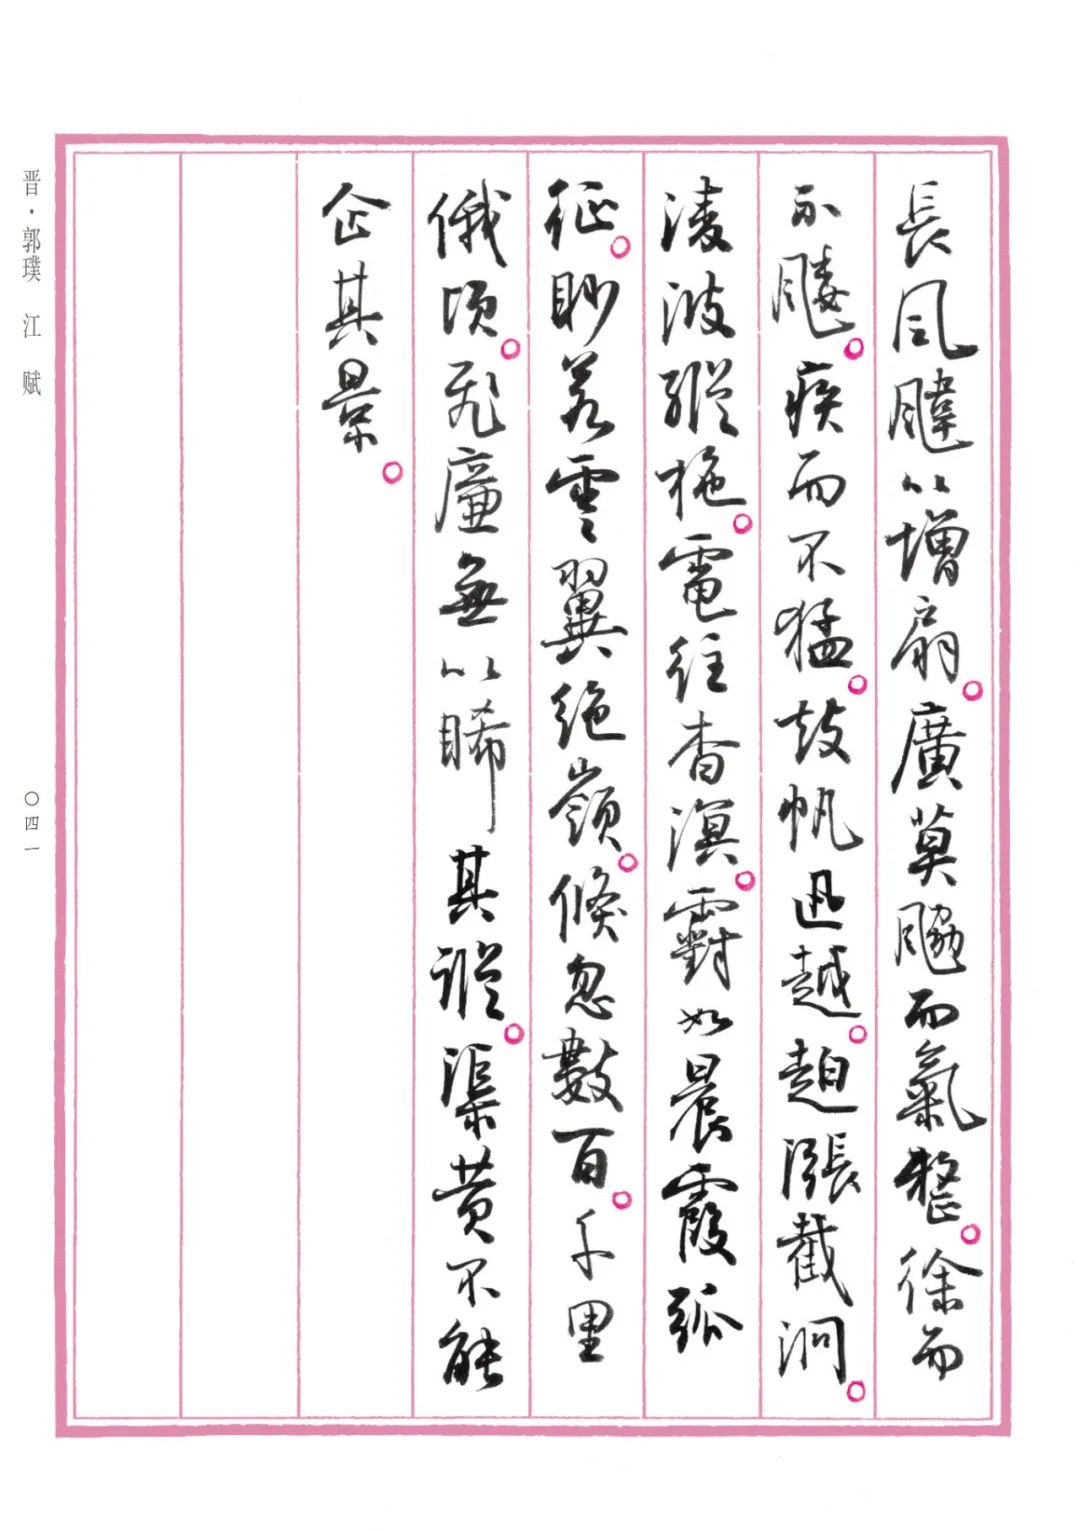 長風䬙以增扇。廣莫䬅而氣整。徐而
不䬝。疾而不猛。鼓帆迅越。趠漲截泂。
淩波縱柂。電往杳溟。䨴如晨霞孤
征。眇若雲翼絕嶺。倏忽數百。千里
俄頃。飛廉無以睎其蹤。渠黃不能
企其景。
晋·郭璞 江 赋
〇四一